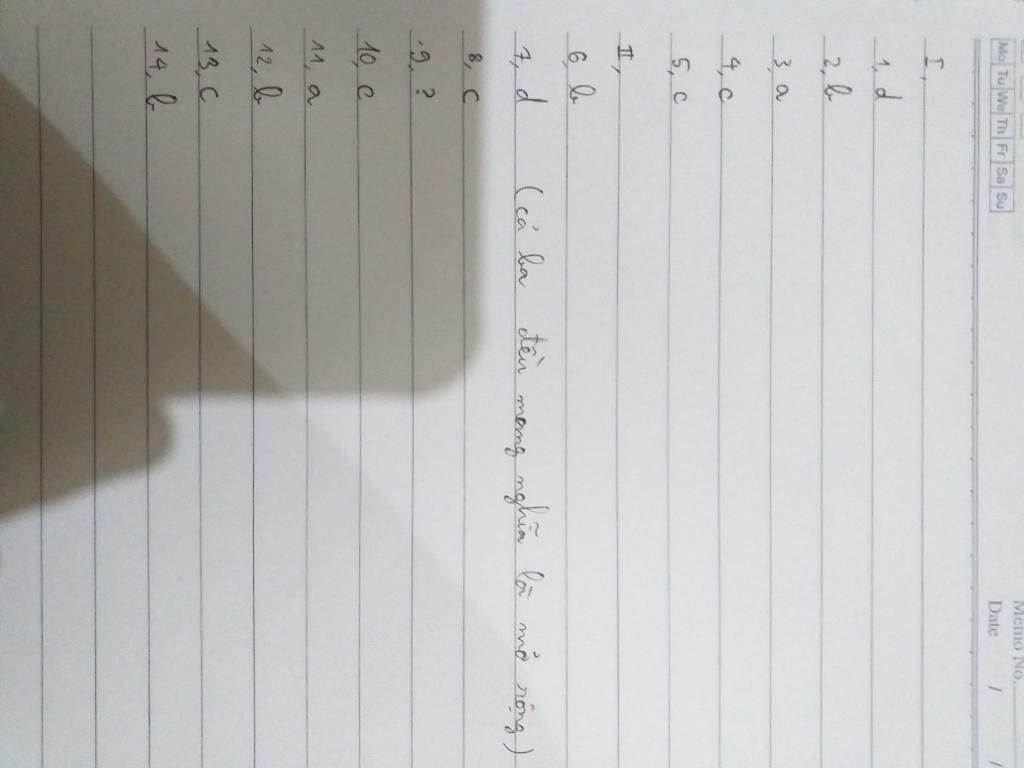 Memo No.
Mo Tu We Th Fr Sa Su
Date / /
I,
1, d
2, b
3, a
4, c
5, c
II,
6, b
7, d (cả ba đều mang nghĩa là mở rộng)
8, c
9, ?
10, c
11, a
12, b
13, c
14, b